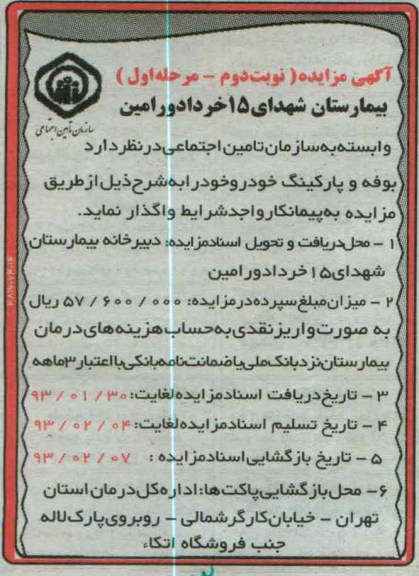 آگهی مزایده ( نوبت دوم - مرحله اول )
بیمارستان شهدای ۱۵ خرداد ورامین
سازمان تأمین اجتماعی
وابسته به سازمان تامین اجتماعی در نظر دارد
بوفه و پارکینگ خودرو خود را به شرح ذیل از طریق
مزایده به پیمانکار واجد شرایط واگذار نماید.
۱ - محل دریافت و تحویل اسناد مزایده: دبیرخانه بیمارستان
شهدای ۱۵ خرداد ورامین
۲ - میزان مبلغ سپرده در مزایده: ۰۰۰ / ۶۰۰ / ۵۷ ریال
به صورت واریز نقدی به حساب هزینه های درمان
بیمارستان نزد بانک ملی یا ضمانت نامه بانکی با اعتبار ۳ماهه
۳ - تاریخ دریافت اسناد مزایده لغایت: ۹۳ / ۰۱ / ۳۰
۴ - تاریخ تسلیم اسناد مزایده لغایت: ۹۳ / ۰۲ / ۰۴
۵ - تاریخ بازگشایی اسناد مزایده : ۹۳ / ۰۲ / ۰۷
۶- محل بازگشایی پاکت ها: اداره کل درمان استان
تهران - خیابان کارگر شمالی - روبروی پارک لاله
جنب فروشگاه اتکاء